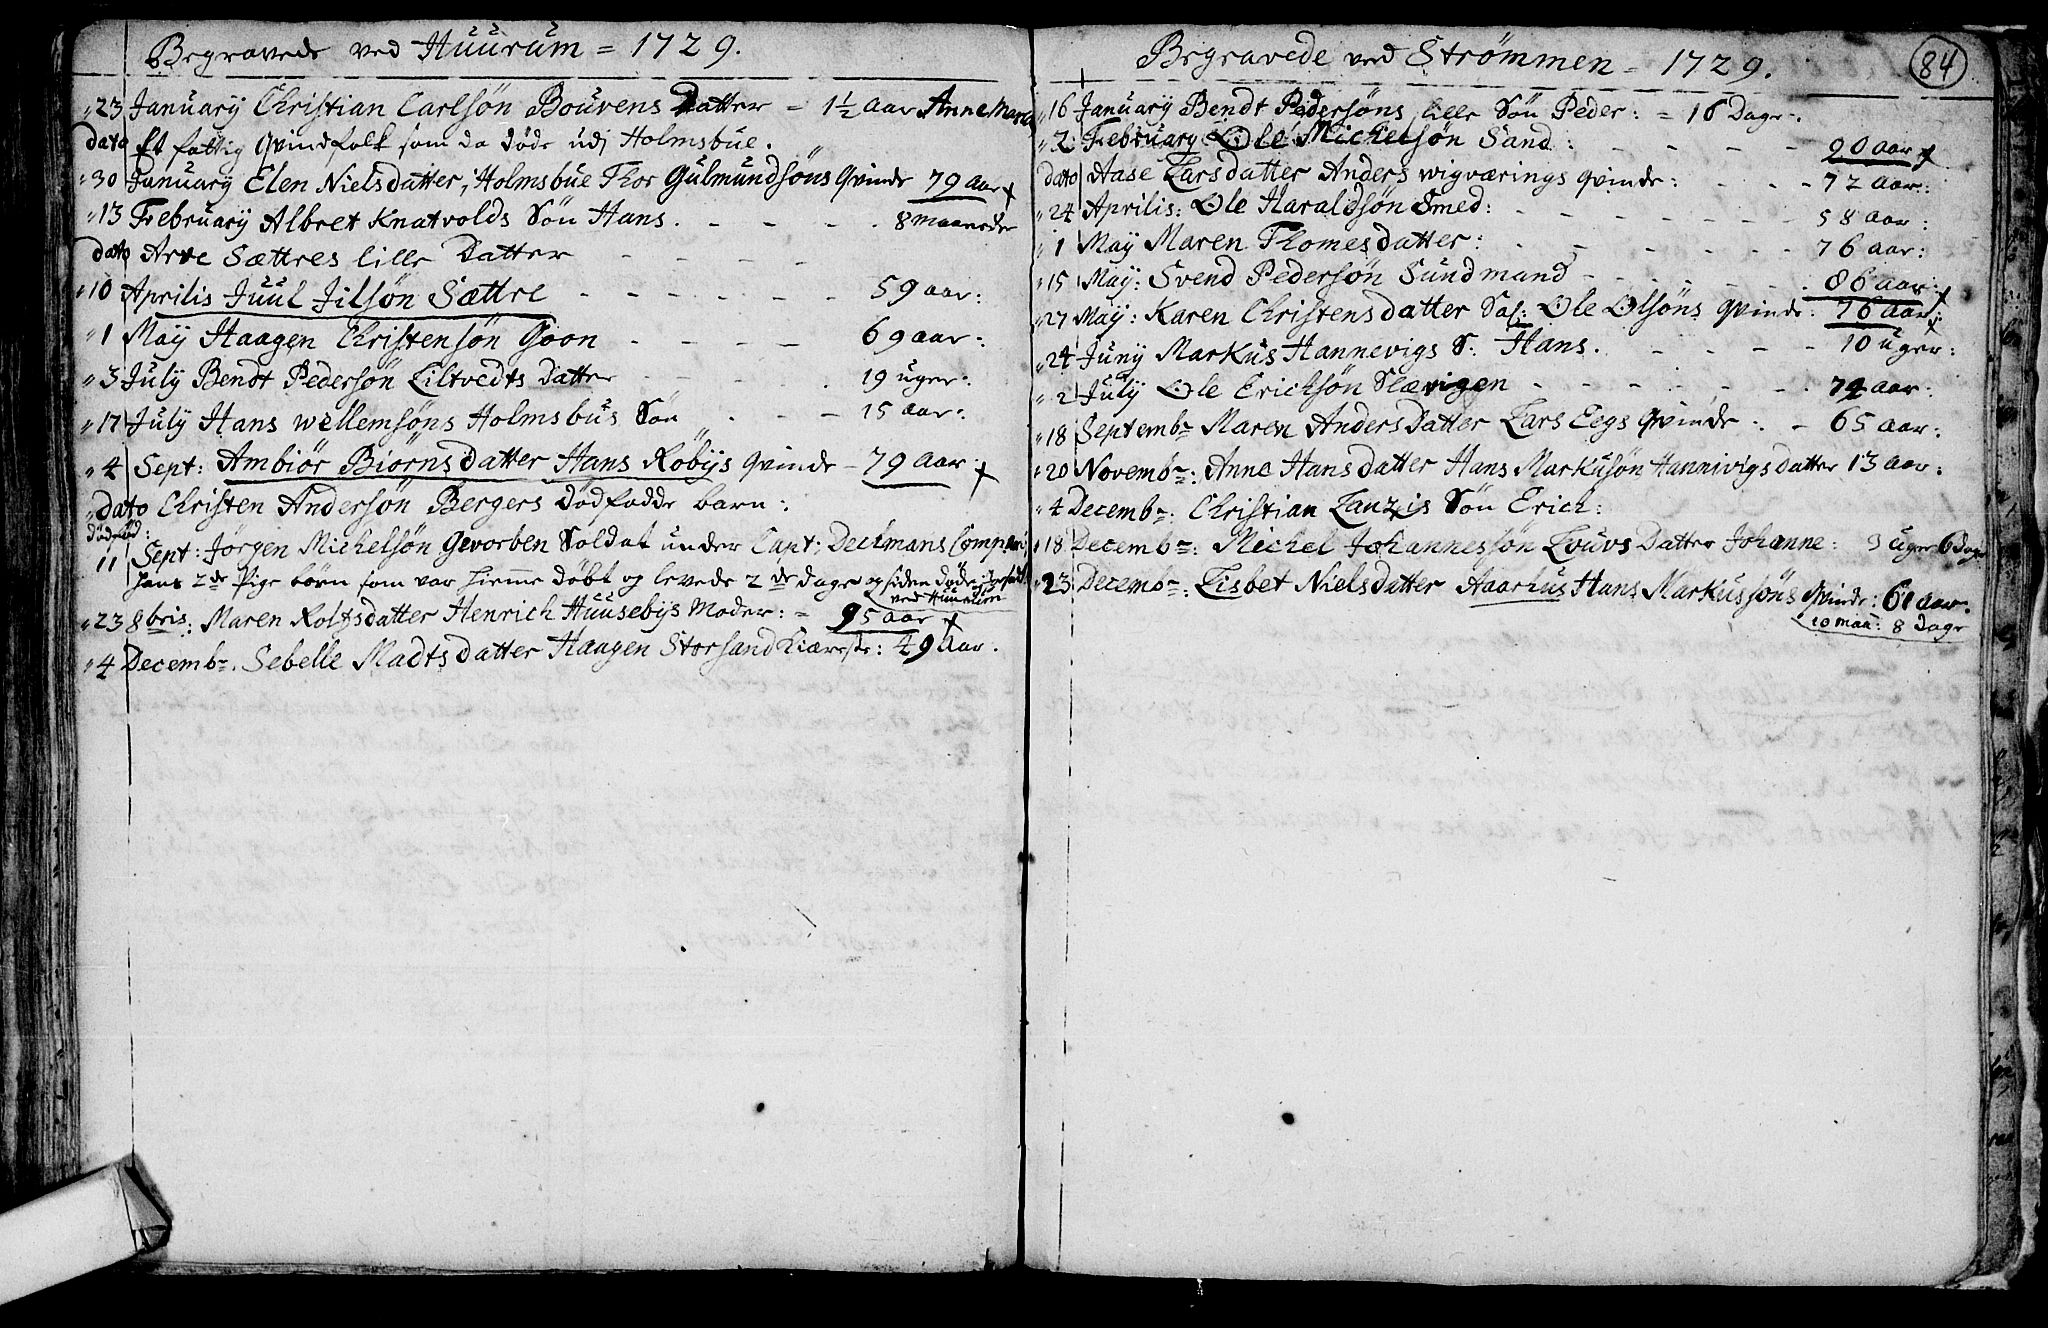 Begravede ved Huurum = 1729.
23 January Christian Carlsøn Bouvens Datter - 1½ aar Anne Maria
dato Et fattig Qvindfolk som da døde udj Holmsbue.
30 January Elen Nielsdatter, Holmsbue Thor Gulmundsøns Qvinde 79 Aar
13 February Albret Knatvolds Søn Hans. - - - 8 maaneder
dato Arve Sættres lille Datter - - - -
10 Aprilis Juul Jilsøn Sættre - - - - - - 59 aar:
1 Maÿ Haagen Christensøn Goon - - - - 69 aar:
3 July Bendt Pedersøn Liltvedts Datter - - - - 19 uger:
17 July Hans Wellemsøns Holmsbus Søn - - - 15 aar:
4 Sept: Ambiør Biørnsdatter Hans Røbÿs Qvinde - 79 Aar:
dato Christen Andersøn Bergers Dødfødde barn:
dødfød:
11 Sept: Jørgen Michelsøn Gevorben Soldat under Capt: Deckmans Comp:
hans 2de Pige børn som var hiemme døbt og levede 2de dage og siden døde
ved Huurum
23 8bris: Maren Rolfsdatter Henrich Huusebÿs Moder: = 95 aar
4 Decembr. Sebelle Madtsdatter Haagen Storsand Kiæreste: 49 Aar.
Begravede ved Strømmen = 1729.
84
16 January Bendt Pedersøns lille Søn Peder: = 16 Dage.
2 February Ole Michelsøn Sand: - - - - 90 aar
dato Aase Larsdatter Anders Wigværings Qvinde: - - - 72 aar:
24 Aprilis: Ole Haraldsøn Smed: - - - - - - 58 aar:
1 Maÿ Maren Thomesdatter: - - - - - - 76 aar:
15 Maÿ: Svend Pedersøn Sundmand - - - - - 86 aar:
27 Maÿ: Karen Christensdatter Sal: Ole Olsøns Qvinde: 76 Aar:
24 Juny Markus Hannevigs S: Hans. - - - - 10 uger:
2 July Ole Ericksøn Slævigen - - - - - - 72 aar:
18 Septembr Maren AndersDatter Lars Eegs Qvinde: - 65 aar:
20 Novembr: Anne Hansdatter Hans Markusøn Hannivigs datter 13 aar:
4 Decembr: Christian Lanzis Søn Erich:
18 Decembr: Michel Johannessøn Louvs Datter Johanne: 3 uger 6 dage
23 Decembr: Lisbet Nielsdatter Aaarhus Hans Markussøns Qvinde: 61 aar.
10 maa: 8 Dage